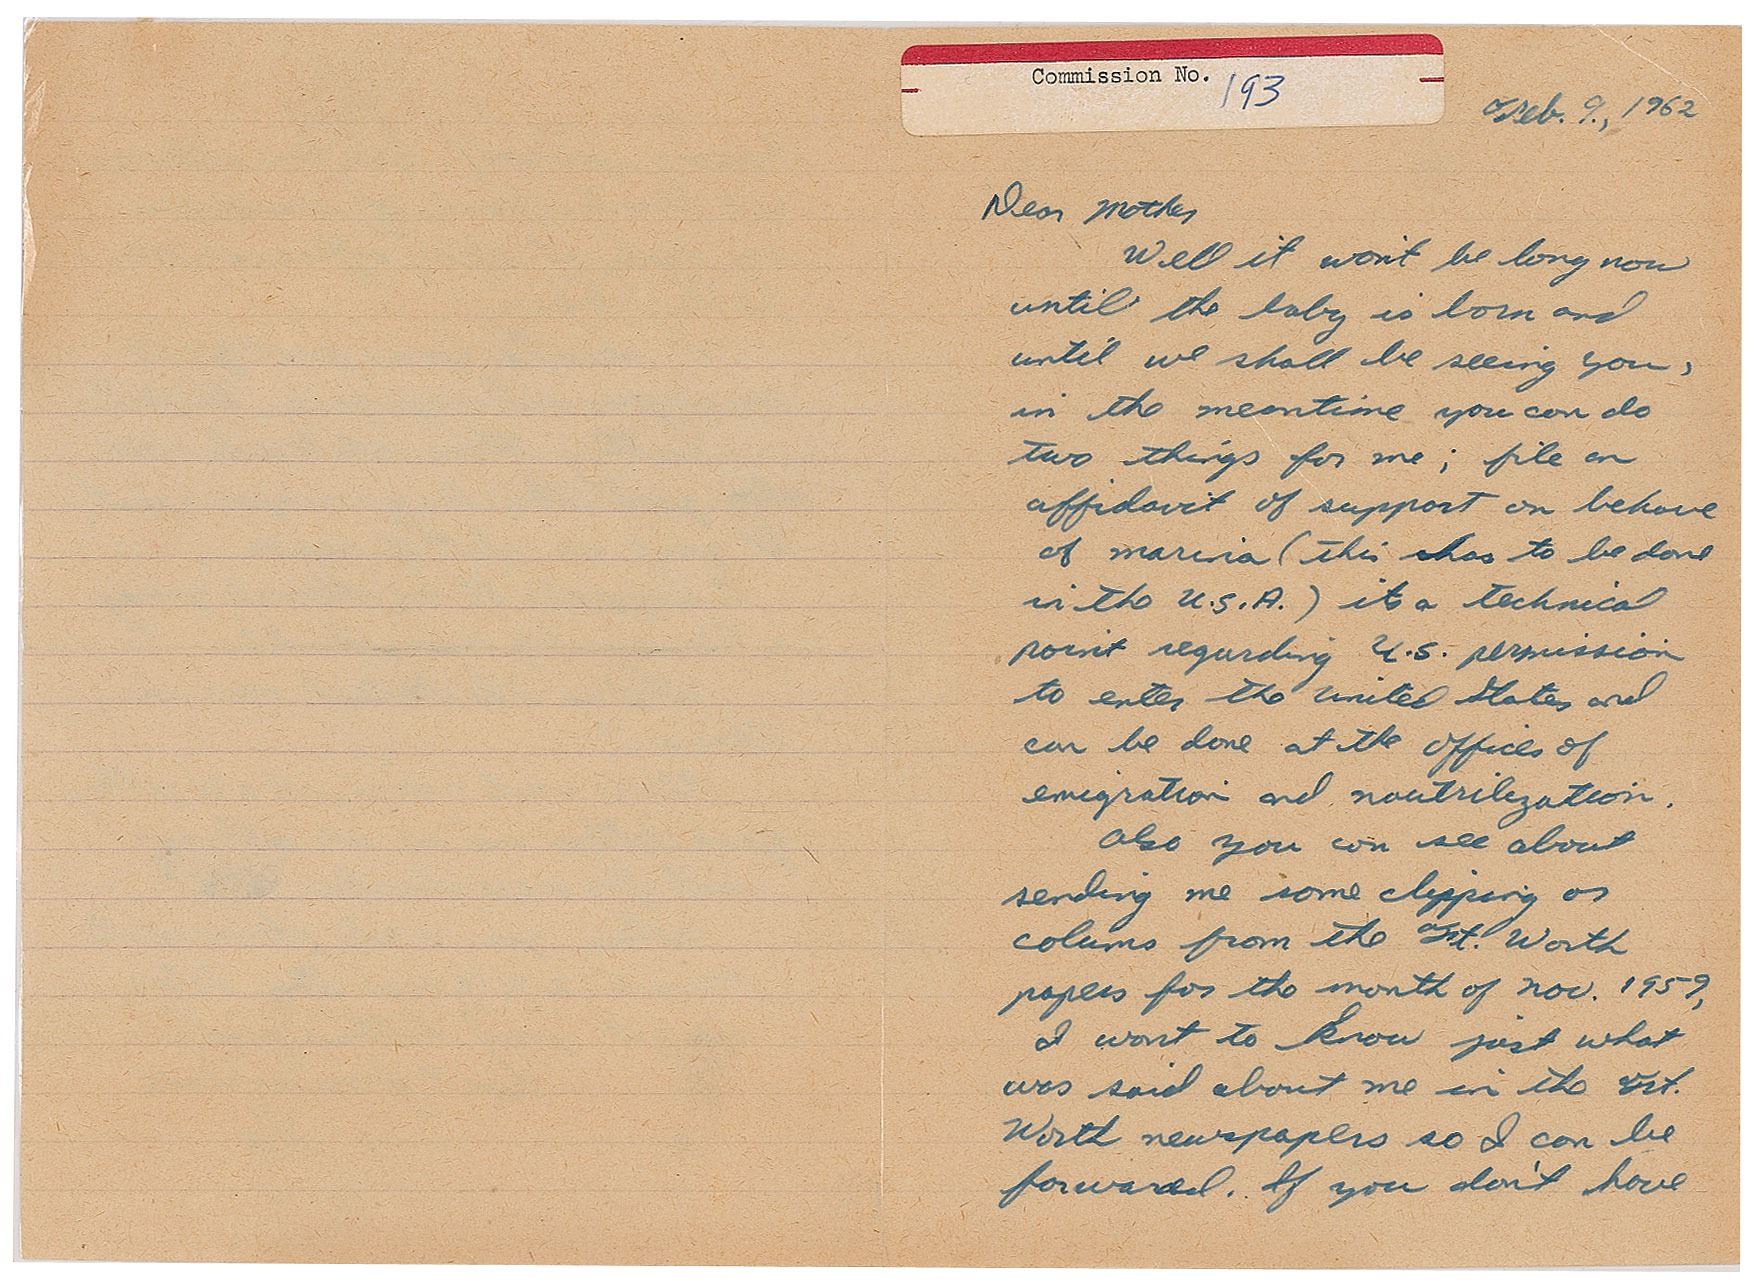 Commission No. 193
Feb. 9., 1962
Dear Mother
Well it won't be long now
until the baby is born and
until we shall be seeing you,
in the meantime you can do
two things for me; file an
affidavit of support on behave
of marina (this has to be done
in the U.S.A.) its a technical
point regarding U.S. permission
to enter the United States and
can be done at the offices of
emigration and nautrilization.
Also you can see about
sending me some clipping or
colums from the Ft. Worth
papers for the month of Nov. 1959,
I want to know just what
was said about me in the Ft.
Worth newspapers so I can be
forwared. If you don't have